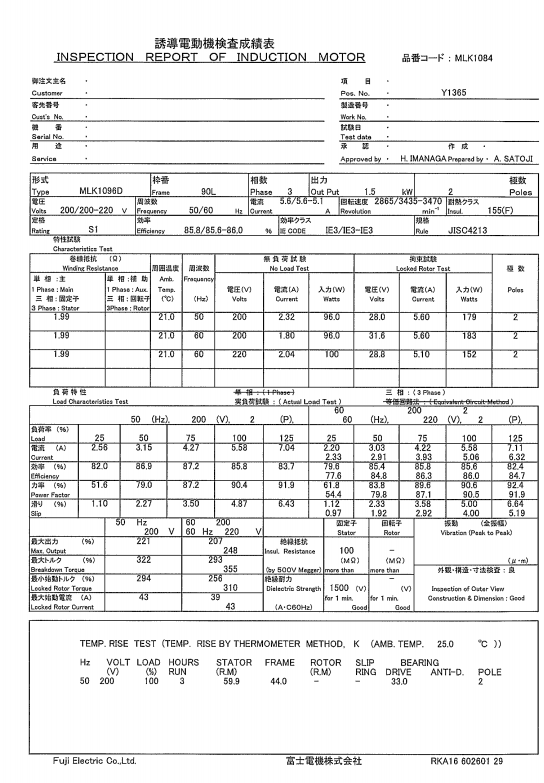 誘導電動機検査成績表
INSPECTION REPORT OF INDUCTION MOTOR
品番コード : MLK1084
御注文主名 ・ 項 目 ・
Customer ・ Pos. No. ・ Y1365
客先番号 ・ 製造番号 ・
Cust's No. ・ Work No. ・
機 番 ・ 試験日 ・
Serial No. ・ Test date ・
用 途 ・ 承 認 ・ 作 成 ・
Service ・ Approved by ・ H. IMANAGA Prepared by ・ A. SATOJI
形式 枠番 相数 出力 極数
Type MLK1096D Frame 90L Phase 3 Out Put 1.5 kW 2 Poles
電圧 周波数 電流 5.6/5.6-5.1 回転速度 2865/3435-3470 耐熱クラス
Volts 200/200-220 V Frequency 50/60 Hz Current A Revolution min⁻¹ Insul. 155(F)
定格 効率 効率クラス 規格
Rating S1 Efficiency 85.8/85.6-86.0 % IE CODE IE3/IE3-IE3 Rule JISC4213
特性試験
Characteristics Test
巻線抵抗 (Ω) 周囲温度 周波数 無負荷試験 拘束試験 極 数
Winding Resistance Amb. Frequency No Load Test Locked Rotor Test
単 相 : 主 単 相 : 補 助 Temp. 電圧(V) 電流(A) 入力(W) 電圧(V) 電流(A) 入力(W)
1 Phase : Main 1 Phase : Aux. Volts Current Watts Volts Current Watts Poles
三 相 : 固定子 三 相 : 回転子 (℃) (Hz)
3 Phase : Stator 3Phase : Rotor
1.99 21.0 50 200 2.32 96.0 28.0 5.60 179 2
1.99 21.0 60 200 1.80 96.0 31.6 5.60 183 2
1.99 21.0 60 220 2.04 100 28.8 5.10 152 2
負荷特性 単 相 : (1 Phase) 三 相 : (3 Phase)
Load Characteristics Test 実負荷試験 : (Actual Load Test) 等価回路法 : (Equivalent Circuit Method)
60 200 2
50 (Hz), 200 (V), 2 (P), 60 (Hz), 220 (V), 2 (P),
負荷率 (%)
Load 25 50 75 100 125 25 50 75 100 125
電流 (A) 2.56 3.15 4.27 5.58 7.04 2.20 3.03 4.22 5.58 7.11
Current 2.33 2.91 3.93 5.06 6.32
効率 (%) 82.0 86.9 87.2 85.8 83.7 79.6 85.4 85.8 85.6 82.4
Efficiency 77.6 84.8 86.3 86.0 84.7
力率 (%) 51.6 79.0 87.2 90.4 91.9 61.8 83.8 89.6 90.6 92.4
Power Factor 54.4 79.8 87.1 90.5 91.9
滑り (%) 1.10 2.27 3.50 4.87 6.43 1.12 2.33 3.58 5.00 6.64
Slip 0.97 1.92 2.92 4.00 5.19
50 Hz 60 200 固定子 回転子 振動 (全振幅)
200 V 60 Hz 220 V Stator Rotor Vibration (Peak to Peak)
最大出力 (%) 221 207 絶縁抵抗
Max. Output 248 Insul. Resistance 100 −
最大トルク (%) 322 293 (MΩ) (MΩ) (μ・m)
Breakdown Torque 355 (by 500V Megger) more than more than 外観・構造・寸法検査 : 良
最小始動トルク (%) 294 256 絶縁耐力
Locked Rotor Torque 310 Dielectric Strength 1500 (V) − (V) Inspection of Outer View
最大始動電流 (A) 43 39 for 1 min. for 1 min. Construction & Dimension : Good
Locked Rotor Current 43 (A・C60Hz) Good Good
TEMP. RISE TEST (TEMP. RISE BY THERMOMETER METHOD, K (AMB. TEMP. 25.0 ℃ ))
Hz VOLT LOAD HOURS STATOR FRAME ROTOR SLIP BEARING
(%) RUN (R.M) (R.M) RING DRIVE ANTI-D. POLE
50 200 100 3 59.9 44.0 − − 33.0 2
Fuji Electric Co.,Ltd. 富士電機株式会社 RKA16 602601 29